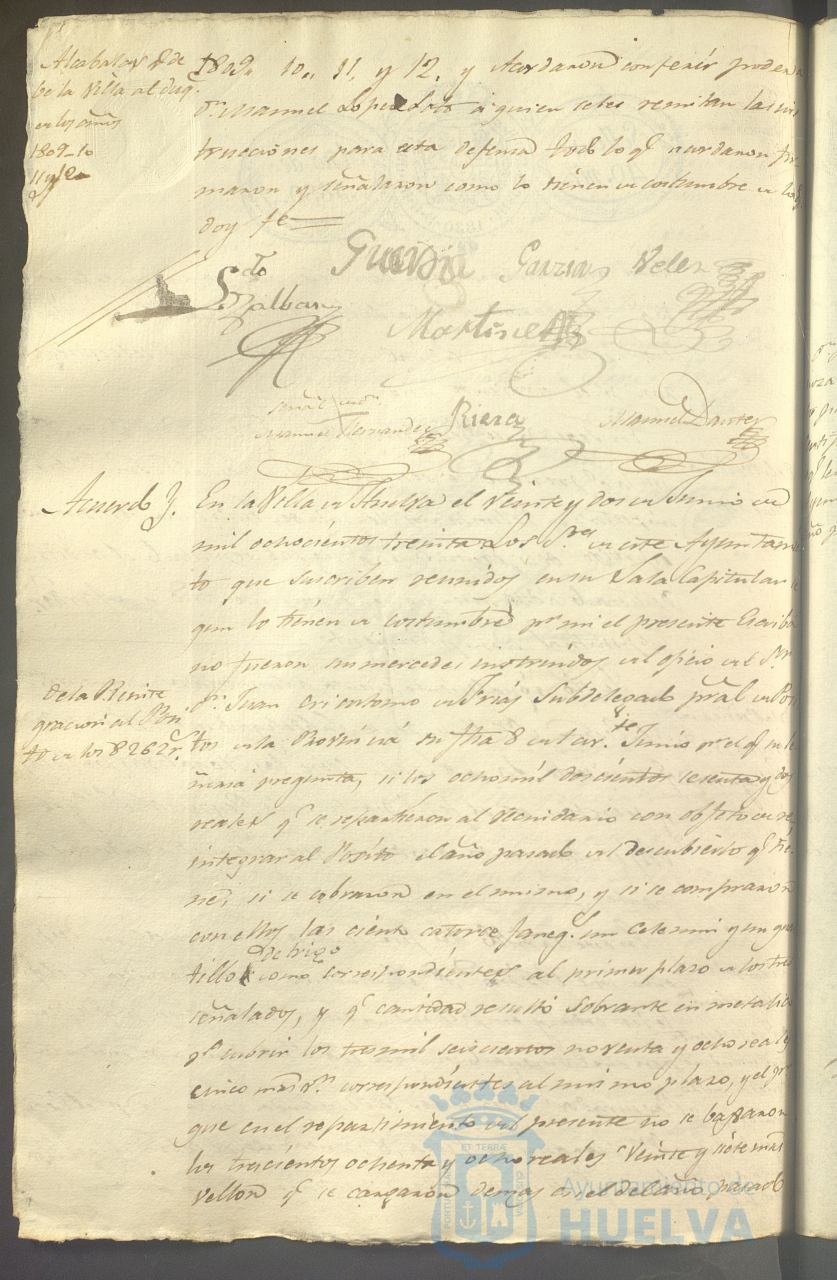 Alcabalas q.e de
be la Villa al Duq.
en los años
1809-10
11 y 12
1809,, 10,, 11, y 12, y Acordaron conferir poder a
D.n Manuel Lopez a quien se les remitan las ins
trucciones para esta defensa todo lo q.e acordaron fir
maron y señalaron como lo tienen de costumbre de todo
doy fe
Garcia Velez
Martinez
Manuel Hernandez
Riera
Manuel
Acuerdo
En la Villa de Huelva el Veinte y dos de Junio de
mil ochocientos treinta Los S.res de este Ayuntam
to que suscriben reunidos en su Sala Capitular se
gun lo tienen de costumbre p.r mi el presente Escriba
no fueron sus mercedes instruidos del oficio del S.or
de la Reinte
gracion al Posi
to de los 8262 r.s
D.n Juan de Frias Subdelegado pral de Posi
tos de la Provincia su fha 8 del cor.te Junio p.r el q.e su Se
ñoria pregunta, si los ocho mil doscientos sesenta y dos
reales q.e se repartieron al Vecindario con objeto de re
integrar al Posito el año pasado del descubierto q.e tie
ne, si se cobraron en el mismo, y si se compraron
con ellos las ciento catorce faneg.s un celemin y un qua
tillo de trigo como correspondientes al primer plazo de los tres
señalados, y q.e cantidad resultó sobrante en metalico
p.a cubrir los tres mil seiscientos noventa y ocho reales
cinco mrs v.n correspondientes al mismo plazo, y el p.r
que en el repartimiento del presente no se bajaron
los trescientos ochenta y ocho reales Veinte y siete mrs
vellon q.e se cargaron demas en el del año pasado
Ayuntamiento de
HUELVA